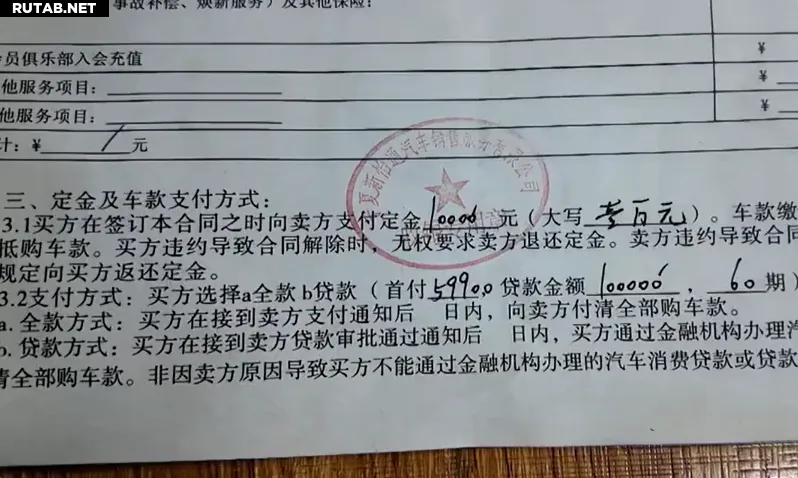 RUTAB.NET
事故补偿、焕新服务）及其他保险：
会员俱乐部入会充值 ¥
他服务项目： ¥
他服务项目： ¥
计：¥ / 元
汽车销售服务有限公司
三、定金及车款支付方式：
3.1买方在签订本合同之时向卖方支付定金10000元（大写壹百元）。车款缴
抵购车款。买方违约导致合同解除时，无权要求卖方退还定金。卖方违约导致合同
规定向买方返还定金。
3.2支付方式：买方选择a全款 b贷款（首付59900 贷款金额100000，60期）
a. 全款方式：买方在接到卖方支付通知后 日内，向卖方付清全部购车款。
b. 贷款方式：买方在接到卖方贷款审批通过通知后 日内，买方通过金融机构办理汽
清全部购车款。非因卖方原因导致买方不能通过金融机构办理的汽车消费贷款或贷款